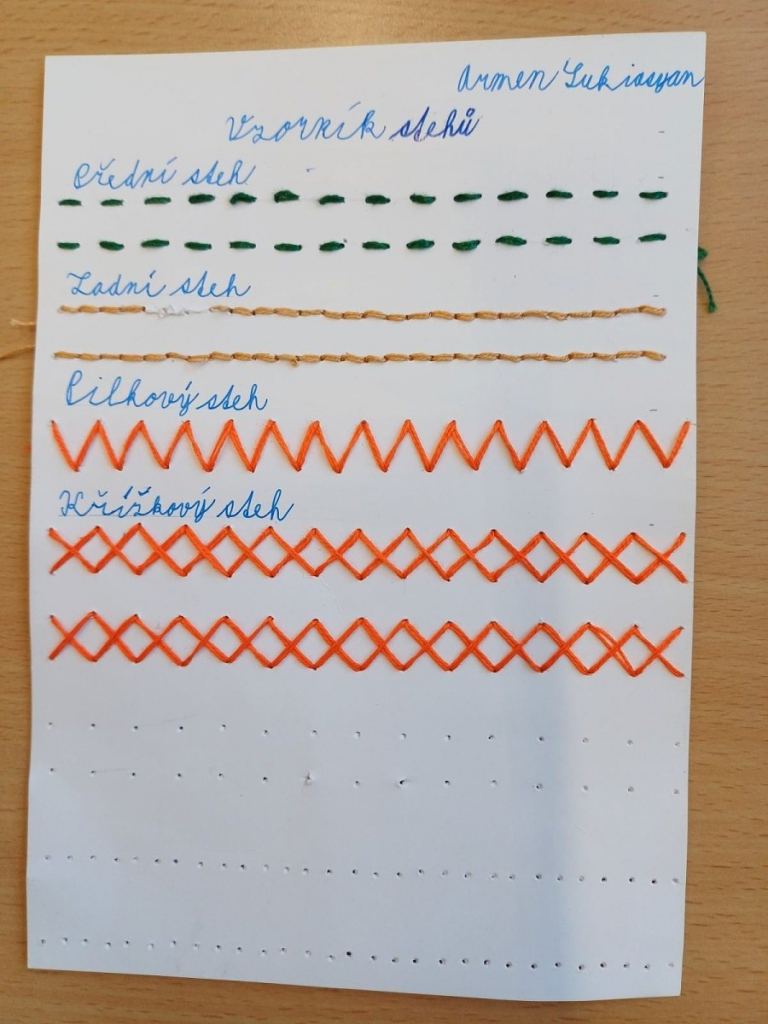 Armen Lukiasyan
Vzorník stehů
Přední steh
Zadní steh
Pilkový steh
Křížkový steh